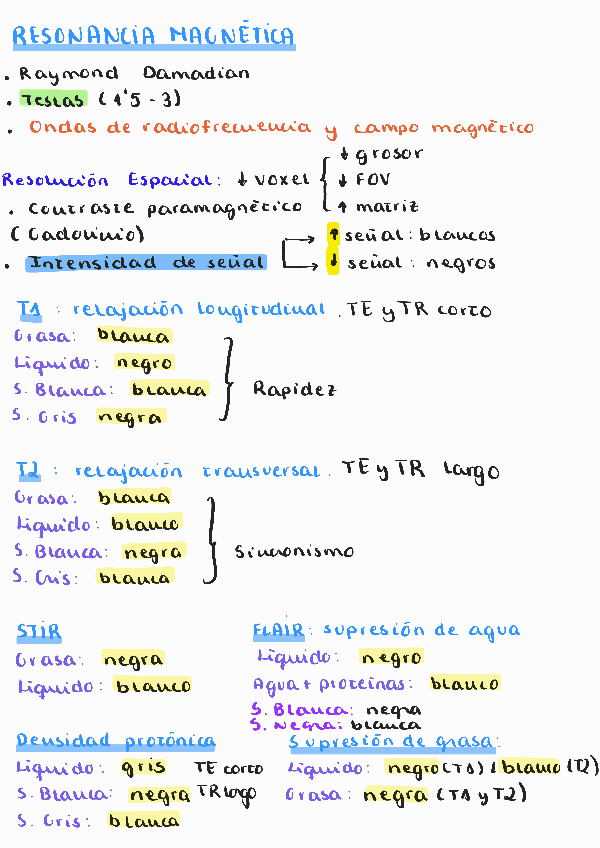 RESONANCIA MAGNÉTICA
. Raymond Damadian
. Teslas (1'5 - 3)
. Ondas de radiofrecuencia y campo magnético
↓ grosor
Resolución Espacial: ↓ voxel { ↓ FOV
. Contraste paramagnético ↑ matriz
(Gadolinio) ↑ señal: blancos
. Intensidad de señal ↓ señal: negros
T1 : relajación longitudinal. TE y TR corto
Grasa: blanca
Líquido: negro
S. Blanca: blanca } Rapidez
S. Gris negra
T2 : relajación transversal. TE y TR largo
Grasa: blanca
Líquido: blanco
S. Blanca: negra } Sincronismo
S. Gris: blanca
STIR
Grasa: negra
Líquido: blanco
FLAIR: supresión de agua
Líquido: negro
Agua + proteínas: blanco
S. Blanca: negra
S. Negra: blanca
Densidad protónica
Líquido: gris TE corto
S. Blanca: negra TR lago
S. Gris: blanca
Supresión de grasa:
Líquido: negro (T1) / blanco (T2)
Grasa: negra (T1 y T2)